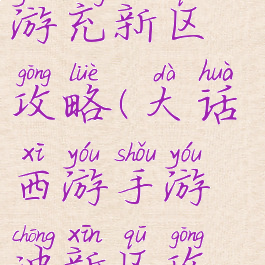 游充新区
gōng lüè dà huà
攻略(大话
xī yóu shǒu yóu
西游手游
chōng xīn qū gōng
冲新区攻